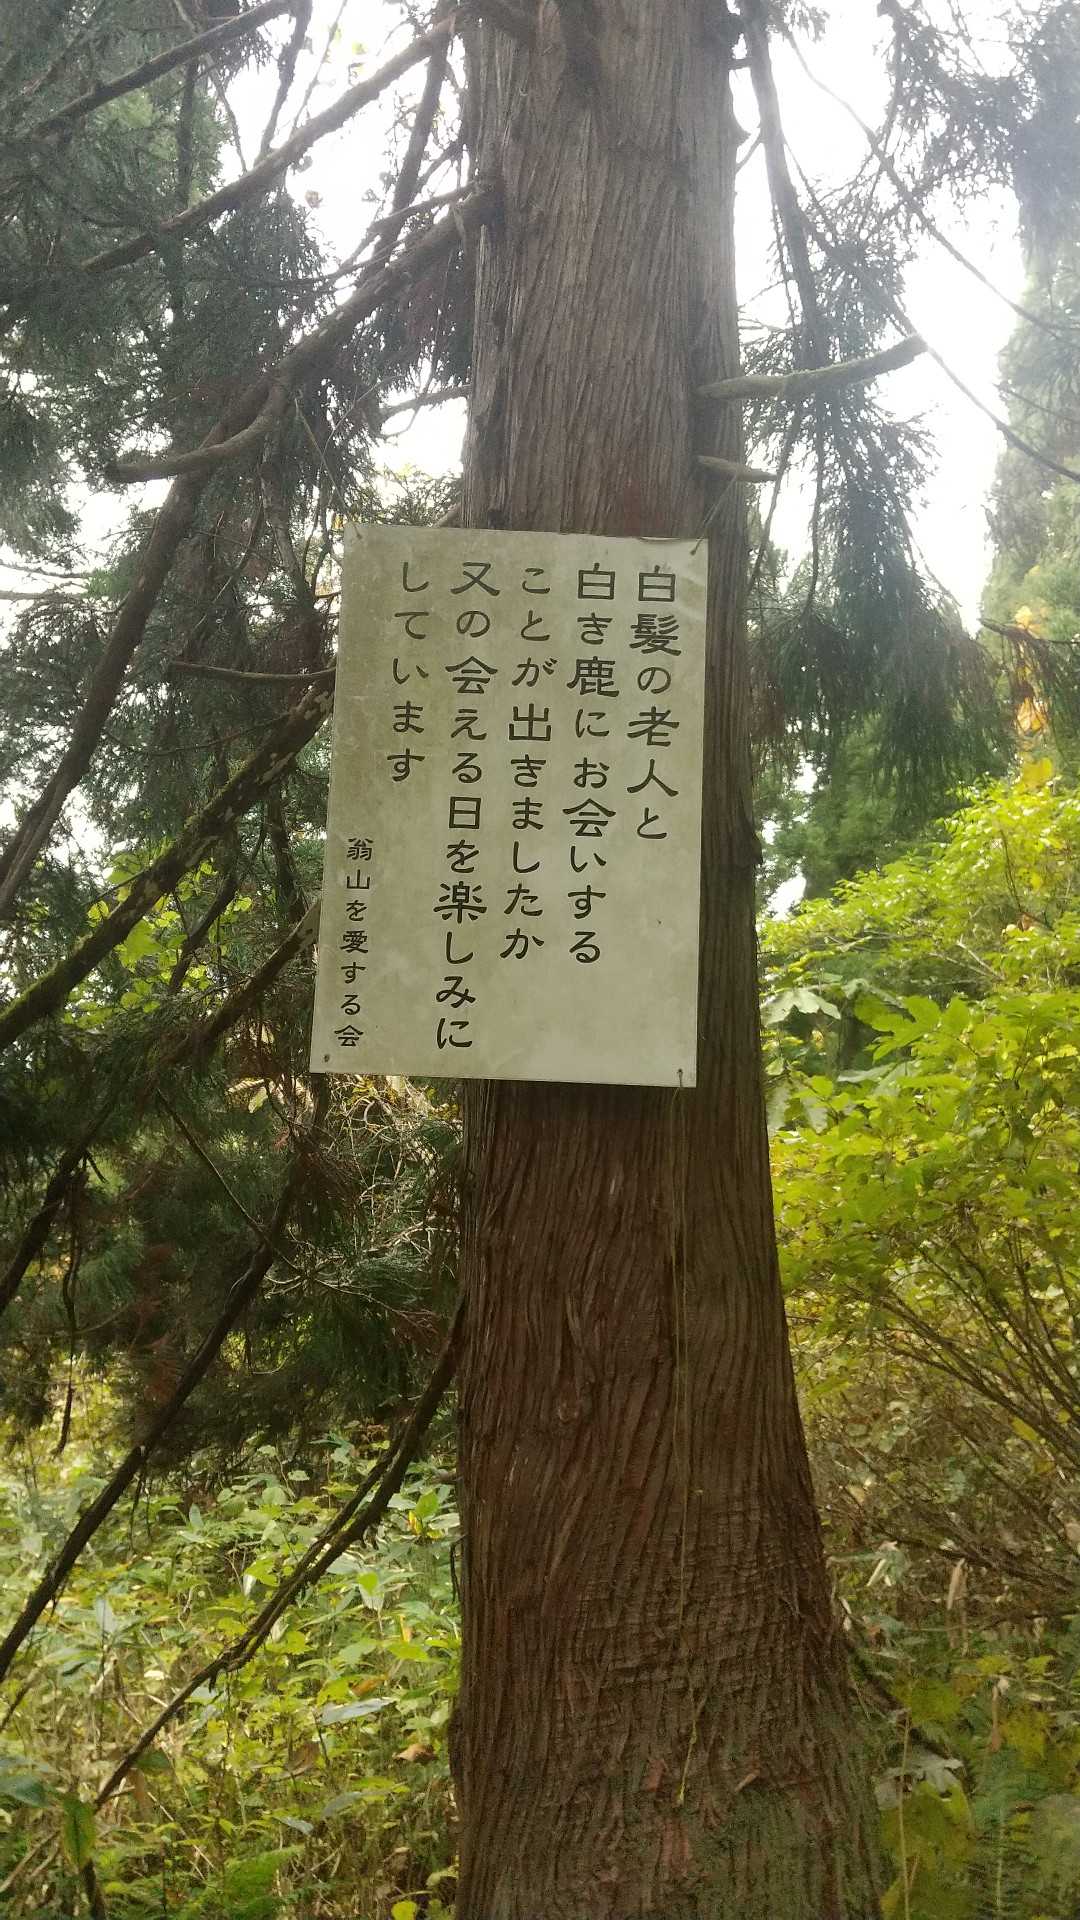 白髪の老人と
白き鹿にお会いする
ことが出きましたか
又の会える日を楽しみに
しています
翁山を愛する会